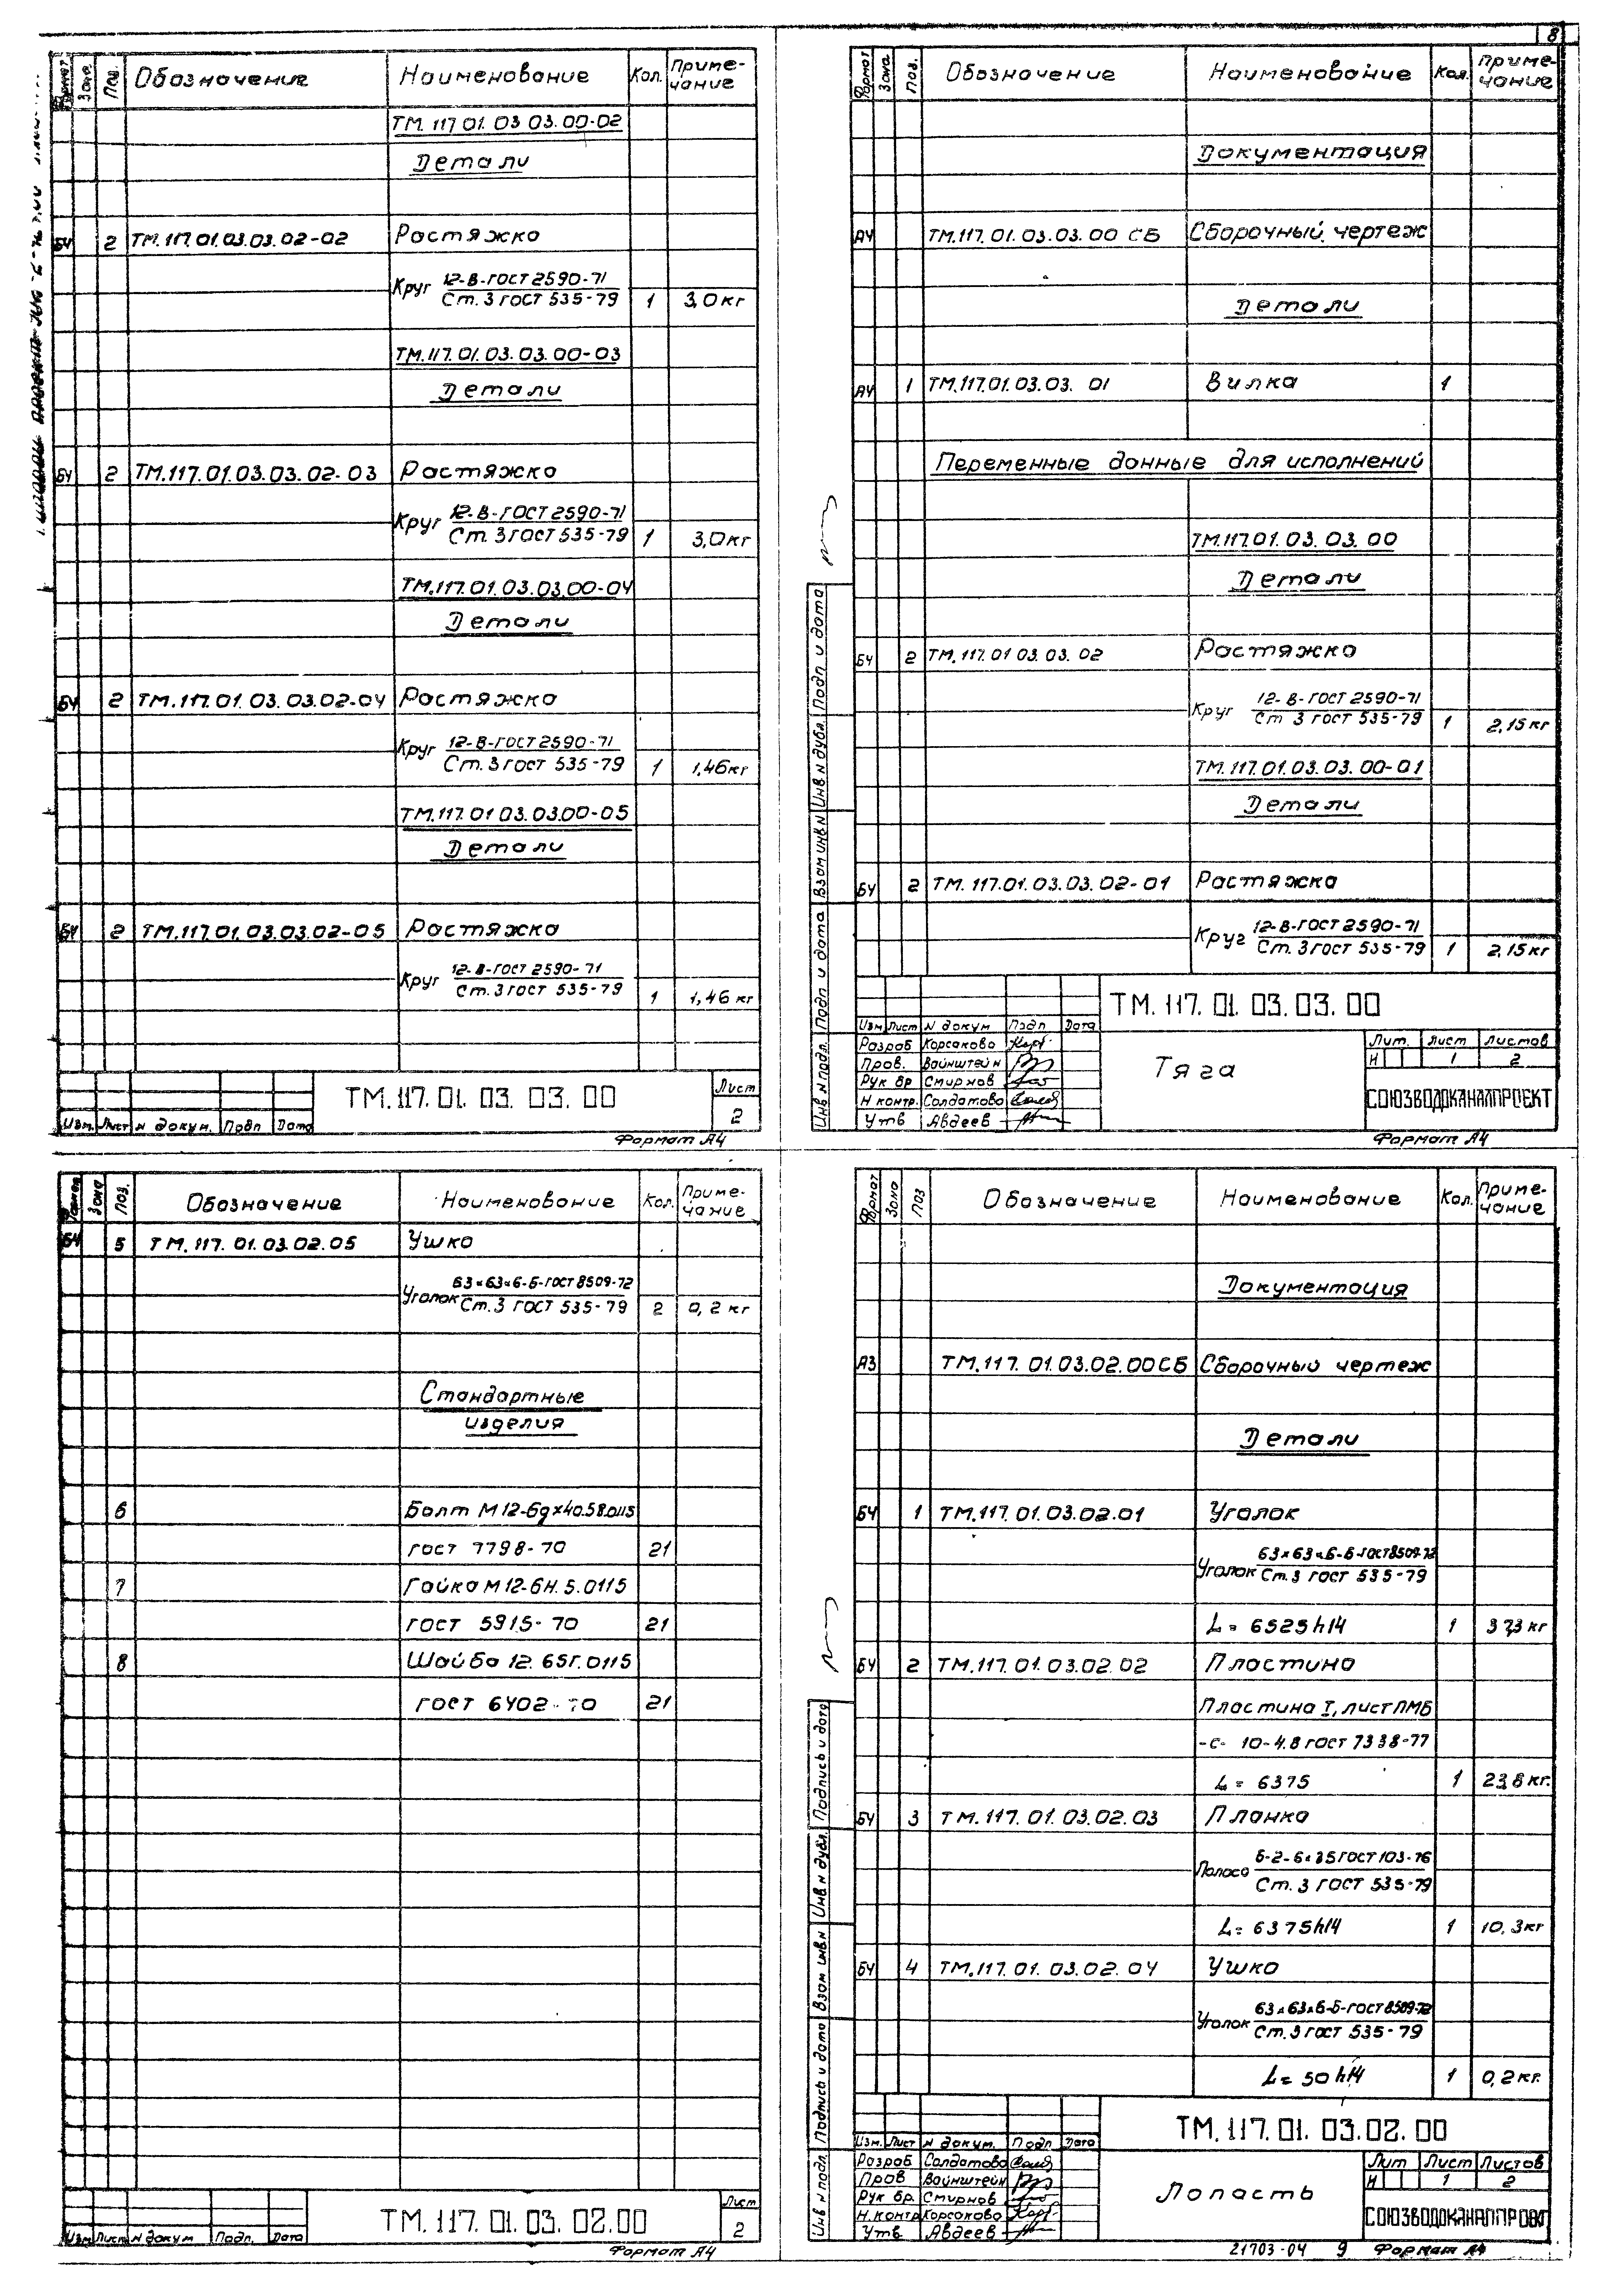 8
Формат Зона Поз. Обозначение Наименование Кол. Примечание
ТМ.117.01.03.03.00-02
Детали
БЧ 2 ТМ.117.01.03.03.02-02 Растяжка
Круг 12-В-ГОСТ 2590-71
Ст.3 ГОСТ 535-79 1 3,0кг
ТМ.117.01.03.03.00-03
Детали
БЧ 2 ТМ.117.01.03.03.02-03 Растяжка
Круг 12-В-ГОСТ 2590-71
Ст.3 ГОСТ 535-79 1 3,0кг
ТМ.117.01.03.03.00-04
Детали
БЧ 2 ТМ.117.01.03.03.02-04 Растяжка
Круг 12-В-ГОСТ 2590-71
Ст.3 ГОСТ 535-79 1 1,46кг
ТМ.117.01.03.03.00-05
Детали
БЧ 2 ТМ.117.01.03.03.02-05 Растяжка
Круг 12-В-ГОСТ 2590-71
Ст.3 ГОСТ 535-79 1 1,46 кг
ТМ.117.01.03.03.00 Лист
2
Изм. Лист N докум. Подп Дата
Формат А4
Формат Зона Поз. Обозначение Наименование Кол. Примечание
Документация
А4 ТМ.117.01.03.03.00 СБ Сборочный чертеж
Детали
А4 1 ТМ.117.01.03.03.01 Вилка 1
Переменные данные для исполнений
ТМ.117.01.03.03.00
Детали
БЧ 2 ТМ.117.01.03.03.02 Растяжка
Круг 12-В-ГОСТ 2590-71
Ст 3 ГОСТ 535-79 1 2,15кг
ТМ.117.01.03.03.00-01
Детали
БЧ 2 ТМ.117.01.03.03.02-01 Растяжка
Круг 12-В-ГОСТ 2590-71
Ст.3 ГОСТ 535-79 1 2,15кг
Инв N подл. Подп и дата Взам инв N Инв N дубл. Подп и дата
ТМ.117.01.03.03.00
Изм Лист N докум Подп Дата
Разраб Корсакова
Пров. Вайнштейн
Рук бр Смирнов
Н контр. Солдатова
Утв Авдеев
Тяга
Лит. Лист Листов
И 1 2
СОЮЗВОДОКАНАЛПРОЕКТ
Формат А4
Формат Зона Поз. Обозначение Наименование Кол. Примечание
БЧ 5 ТМ.117.01.03.02.05 Ушко
Уголок 63×63×6-Б-ГОСТ 8509-72
Ст.3 ГОСТ 535-79 2 0,2 кг
Стандартные
изделия
6 Болт М12-6g×40.58.0115
ГОСТ 7798-70 21
7 Гайка М12-6Н.5.0115
ГОСТ 5915-70 21
8 Шайба 12.65Г.0115
ГОСТ 6402-70 21
ТМ.117.01.03.02.00 Лист
2
Изм Лист N докум Подп. Дата
Формат А4
Формат Зона Поз Обозначение Наименование Кол. Примечание
Документация
А3 ТМ.117.01.03.02.00СБ Сборочный чертеж
Детали
БЧ 1 ТМ.117.01.03.02.01 Уголок
Уголок 63×63×6-Б-ГОСТ 8509-72
Ст.3 ГОСТ 535-79
L = 6525 h14 1 37,3 кг
БЧ 2 ТМ.117.01.03.02.02 Пластина
Пластина I, лист ПМБ
-С-10-4.8 ГОСТ 7338-77
L = 6375 1 23,8 кг.
БЧ 3 ТМ.117.01.03.02.03 Планка
Полоса Б-2-6×35 ГОСТ 103-76
Ст.3 ГОСТ 535-79
L = 6375h14 1 10,3кг
БЧ 4 ТМ.117.01.03.02.04 Ушко
Уголок 63×63×6-Б-ГОСТ 8509-72
Ст.3 ГОСТ 535-79
L = 50 h14 1 0,2 кг.
Инв N подл. Подпись и дата Взам инв N Инв N дубл. Подпись и дата
ТМ.117.01.03.02.00
Изм. Лист N докум. Подп Дата
Разраб Солдатова
Пров Вайнштейн
Рук бр. Смирнов
Н.контр Корсакова
Утв Авдеев
Лопасть
Лит Лист Листов
И 1 2
СОЮЗВОДОКАНАЛПРОЕКТ
21703-04 9 Формат А4